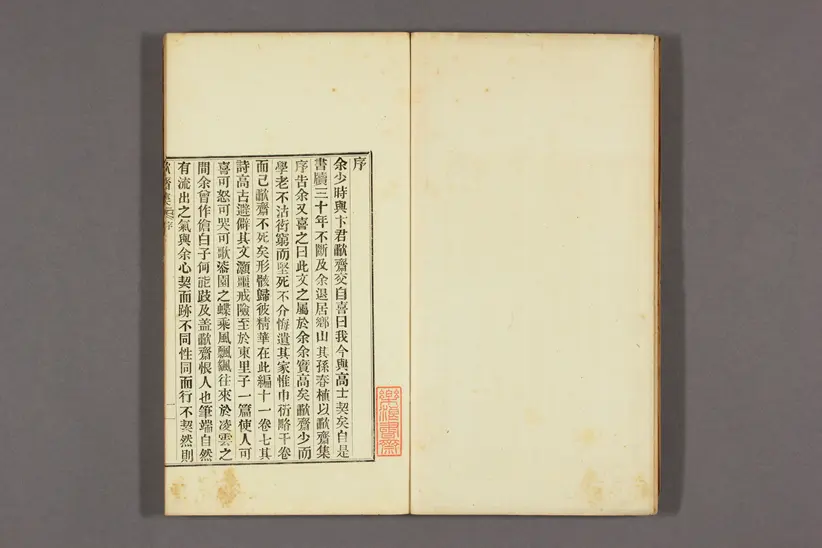 序
余少時與卞君歗齋交自喜曰我今與高士契矣自是
書牘三十年不斷及余退居鄕山其孫春植以歗齋集
序告余又喜之曰此文之屬於余余實高矣歗齋少而
學老不沽衒窮而堅死不分悔遺其家惟巾衍略干卷
而已歗齋不死矣形骸歸彼精華在此編十一卷七其
詩高古避僻其文灝噩戒險至於東里子一篇使人可
喜可怒可哭可歌漆園之蝶乘風飄颻往來於凌雲之
間余曾作偸白子何能跂及盖歗齋恨人也筆端自然
有流出之氣與余心契而跡不同性同而行不契然則
歗齋集 序
一